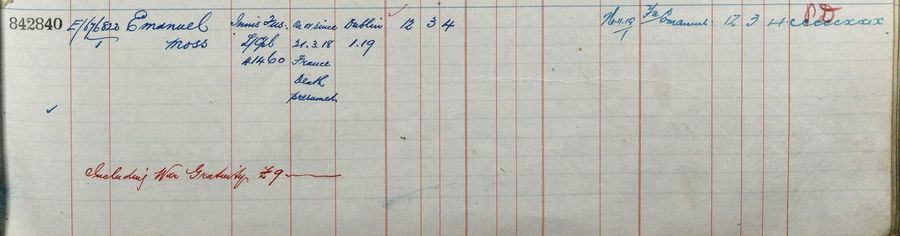 842840 E/676822/1 Emanuel Innis Fus. on or since Dublin 12 3 4 11.19 Fa Emanuel 12 3 4
Moss L/Cpl 21.3.18 1.19
41460 France
Death
presumed
Including War Gratuity £9